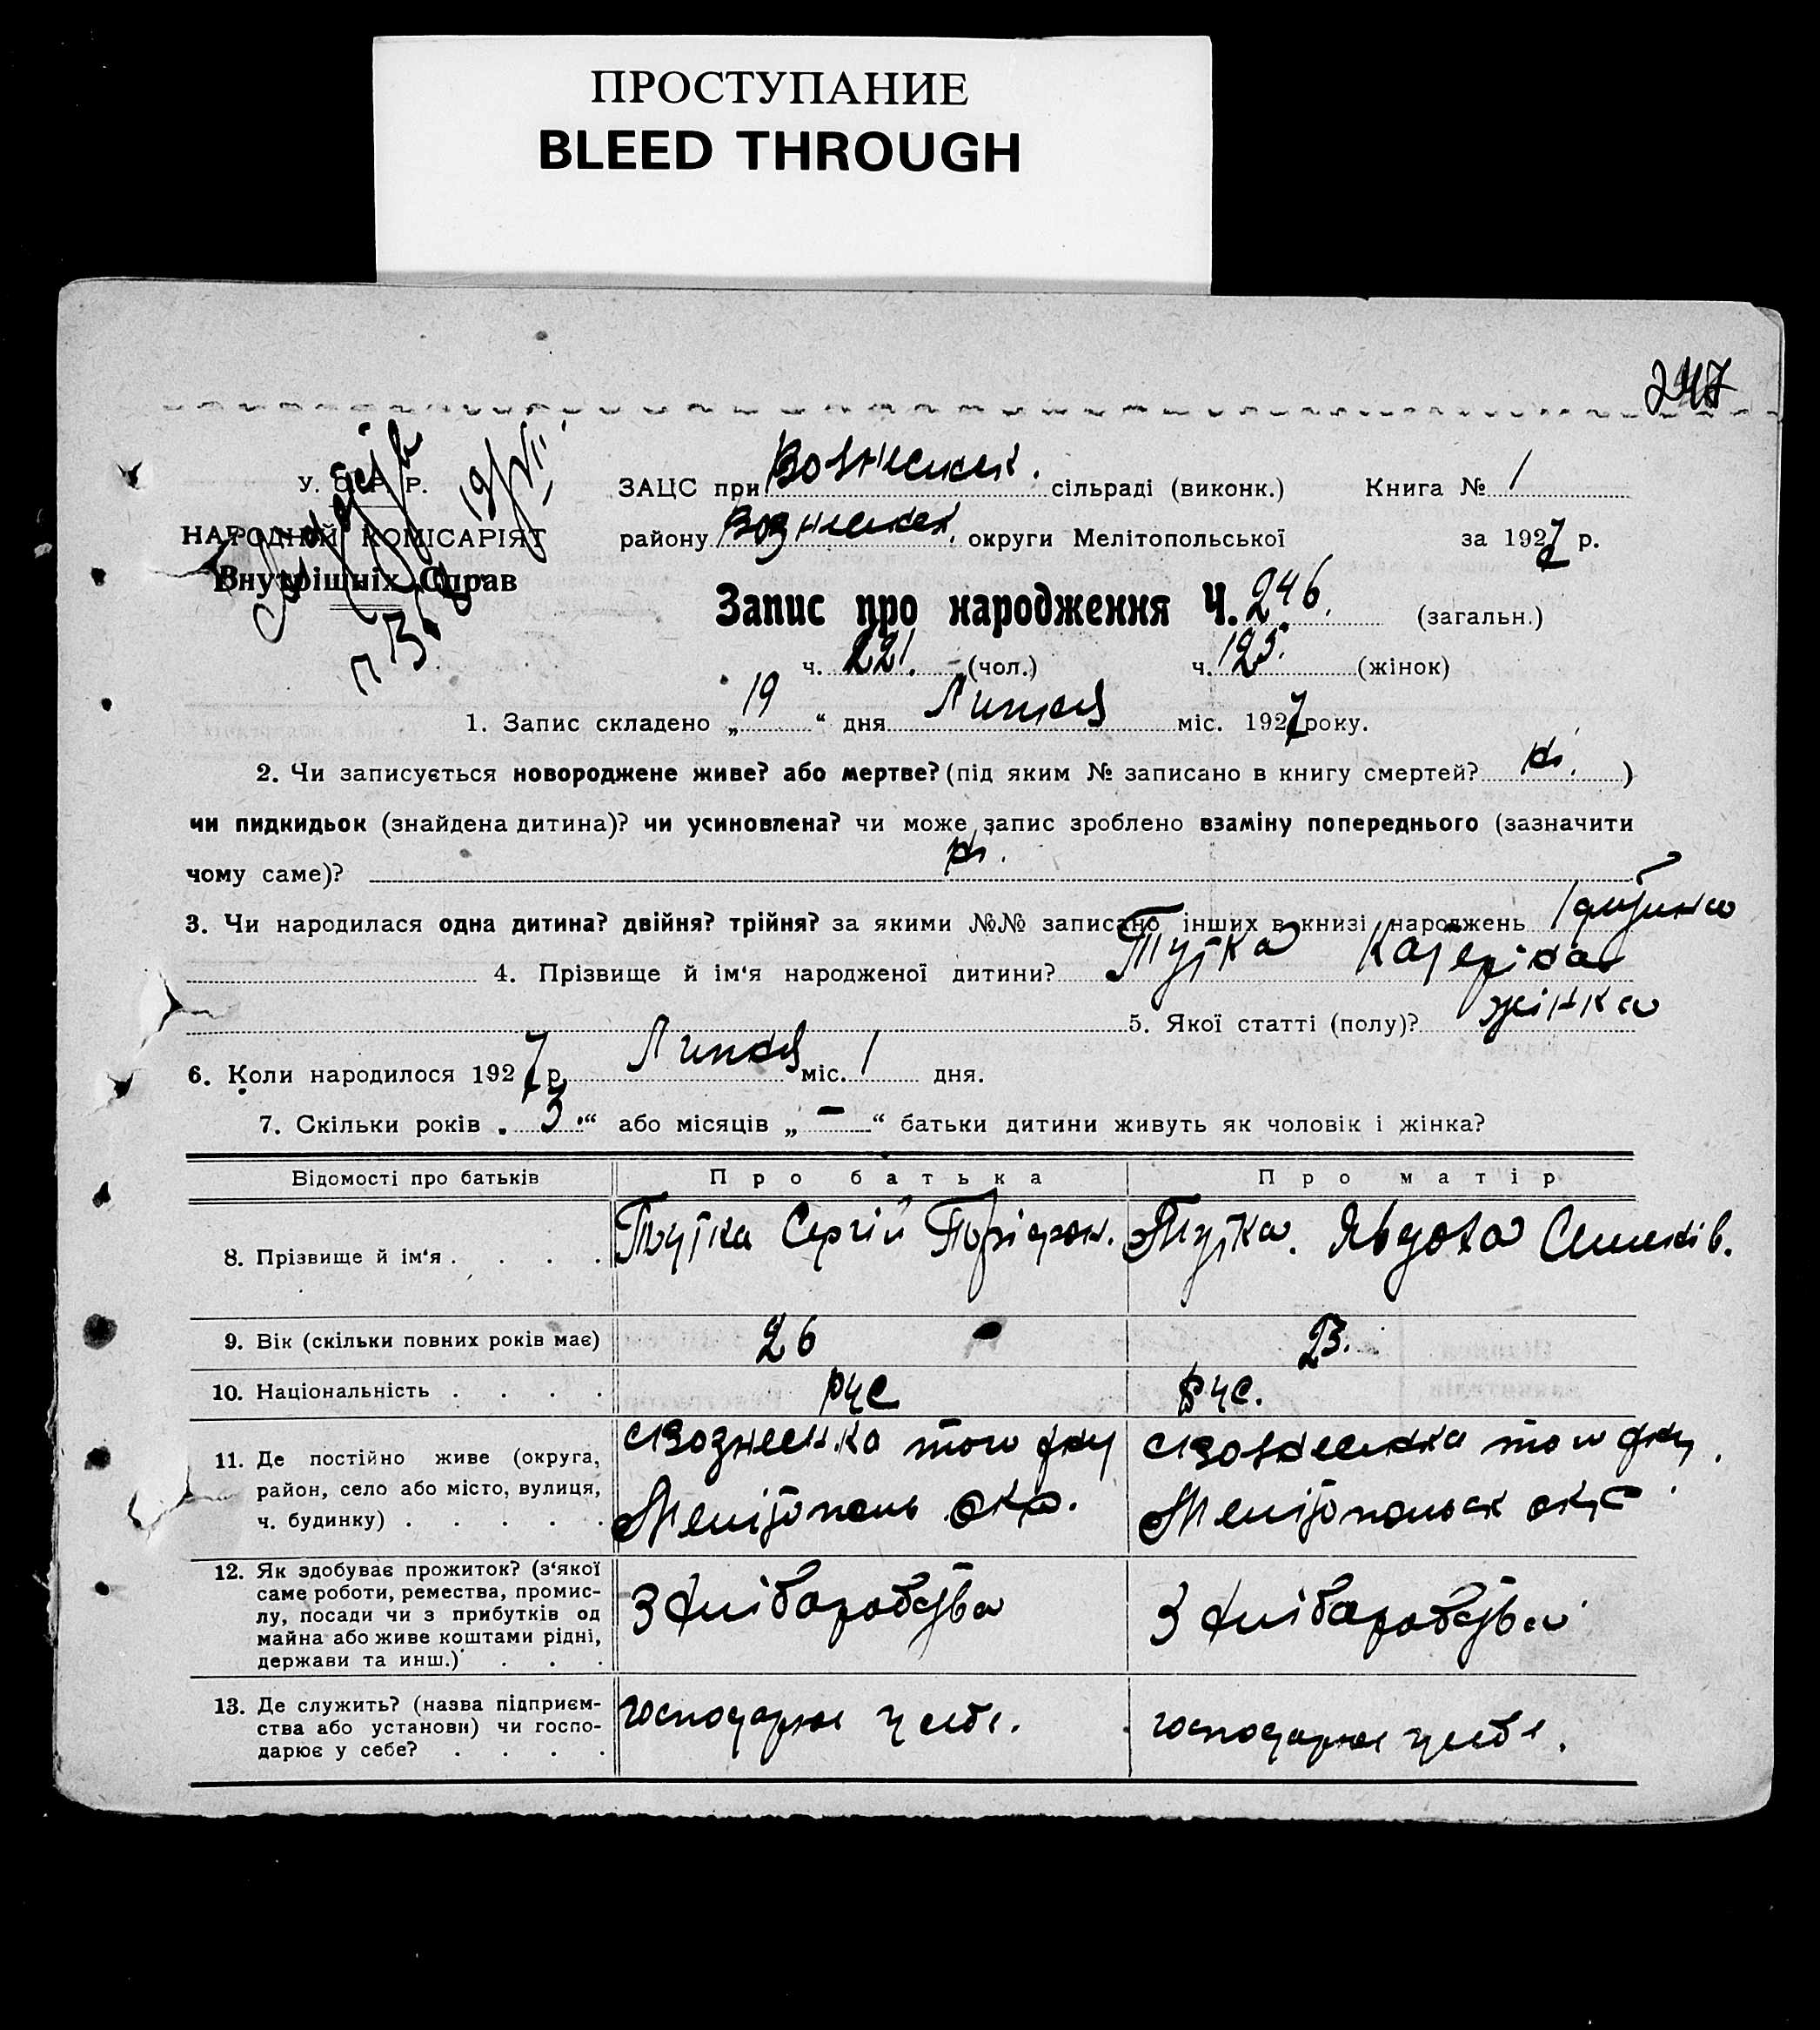 ПРОСТУПАНИЕ
BLEED THROUGH
247
У. С. Р. Р.
НАРОДНІЙ КОМІСАРІЯТ
Внутрішніх Справ
19/VII
ЗАЦС при Вознесенск. сільраді (виконк.) Книга № 1
району Вознесенск. округи Мелітопольської за 1927 р.
Запис про народження Ч. 246. (загальн.)
ч. 221. (чол.) ч. 125. (жінок)
1. Запис складено „ 19 “ дня Липня міс. 1927 року.
2. Чи записується новороджене живе? або мертве? (під яким № записано в книгу смертей? Ні. )
чи пидкидьок (знайдена дитина)? чи усиновлена? чи може запис зроблено взаміну попереднього (зазначити
чому саме)? Ні.
3. Чи народилася одна дитина? двійня? трійня? за якими №№ записано інших в книзі народжень 1 дитина
4. Прізвище й ім'я народженої дитини? Тутка Катеріна
5. Якої статті (полу)? жінка
6. Коли народилося 1927 р. Липня міс. 1 дня.
7. Скільки років „ 3 “ або місяців „ — “ батьки дитини живуть як чоловік і жінка?
Відомості про батьків Про батька Про матір
8. Прізвище й ім'я . . . . Тутка Сергій Тріфон. Тутка. Явдоха Семенів.
9. Вік (скільки повних років має) 26 23.
10. Національність . . . . рус рус.
11. Де постійно живе (округа,
район, село або місто, вулиця,
ч. будинку) . . . . .
с Вознесенка того р-ну
Мелітополь окр.
с Вознесенка того р-ну.
Мелітопольск окр.
12. Як здобуває прожиток? (з'якої
саме роботи, ремества, промис-
лу, посади чи з прибутків од
майна або живе коштами рідні,
держави та инш.) . . .
З хліборобства З хліборобства
13. Де служить? (назва підприєм-
ства або установи) чи госпо-
дарює у себе? . . . .
господарює у себе. господарює у себе.